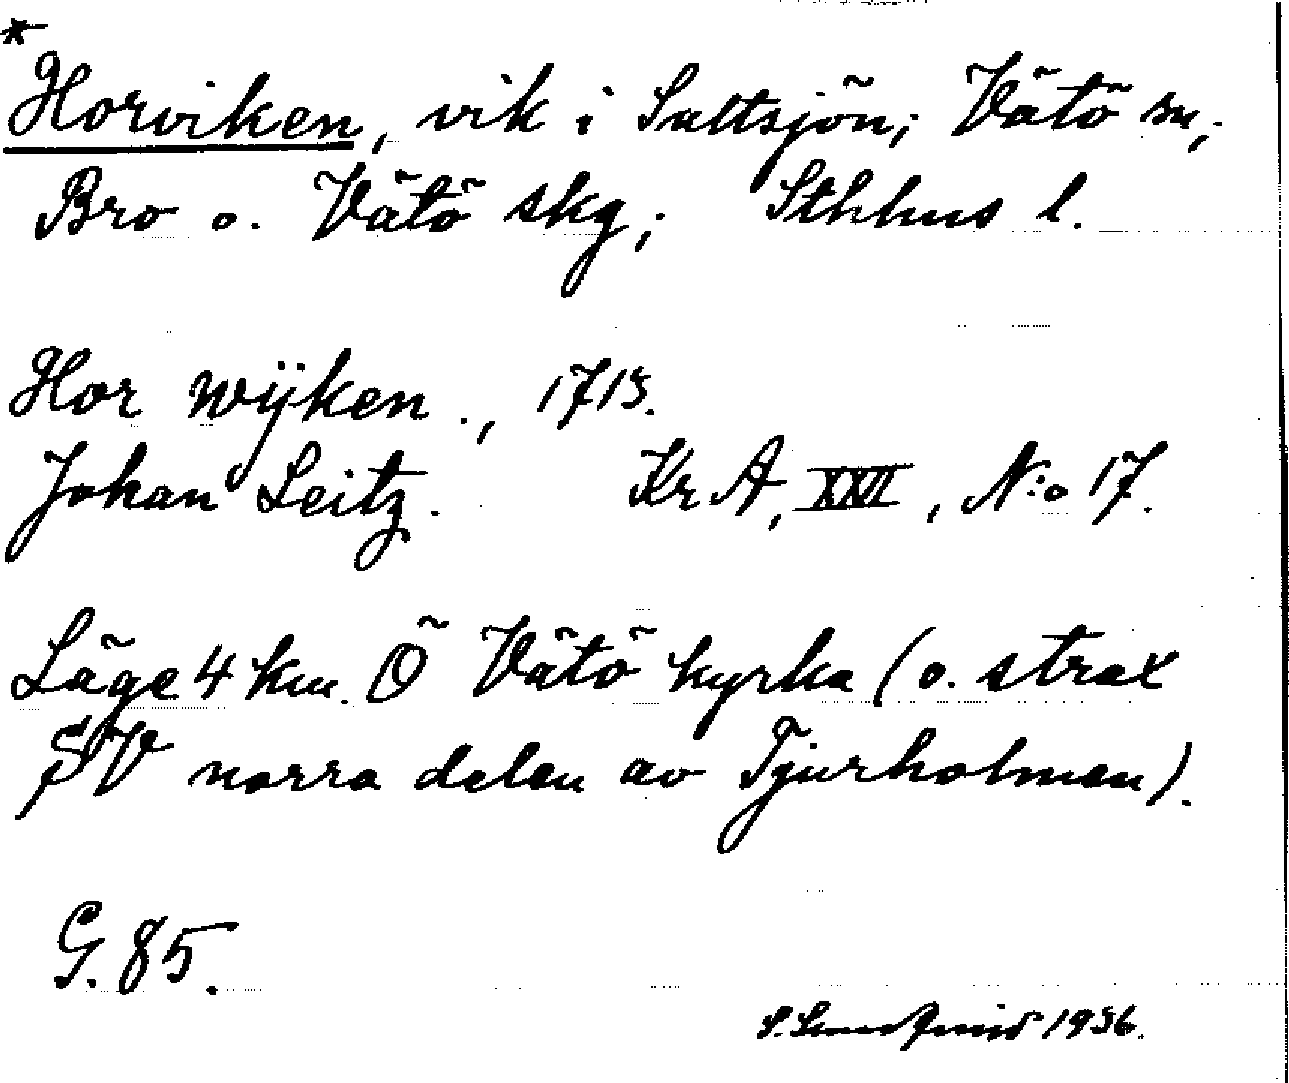 *
Horviken, vik i Saltsjön; Vätö sn,
Bro o. Vätö skg; Sthlms l.
Hor wijken., 1715.
Johan Leitz. Kr A, XXVI, N:o 17.
Läge 4 km. Ö Vätö kyrka (o. strax
SV norra delen av Tjurholmen).
G. 85.
S. 1936.